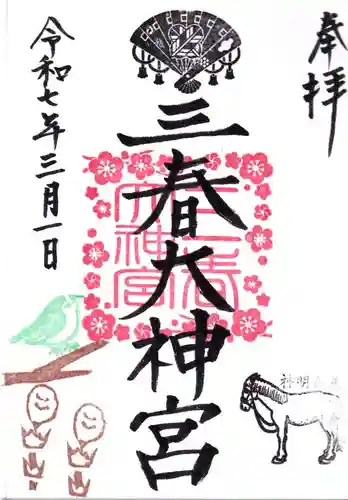 奉拝
三春大神宮
三春大神宮
令和七年三月一日
神明